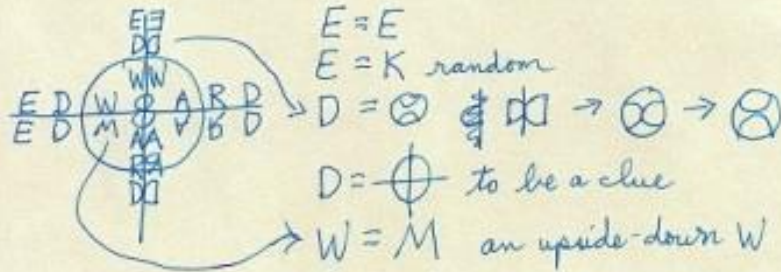 E E
D D
W W
E D W A R D
E D M A R D
A A
R A
D D
E = E
E = K random
D = → →
D = to be a clue
W = M an upside-down W